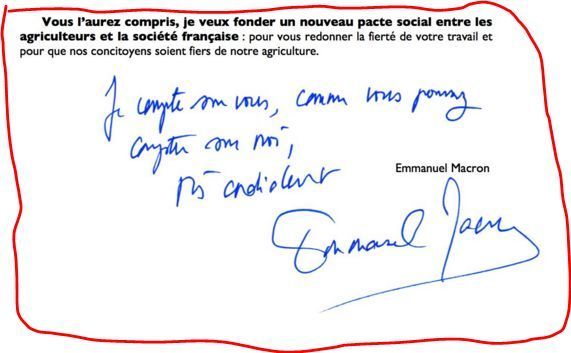 Vous l'aurez compris, je veux fonder un nouveau pacte social entre les
agriculteurs et la société française : pour vous redonner la fierté de votre travail et
pour que nos concitoyens soient fiers de notre agriculture.
Je compte sur vous, comme vous pouvez
compter sur moi,
très cordialement
Emmanuel Macron
Emmanuel Macron